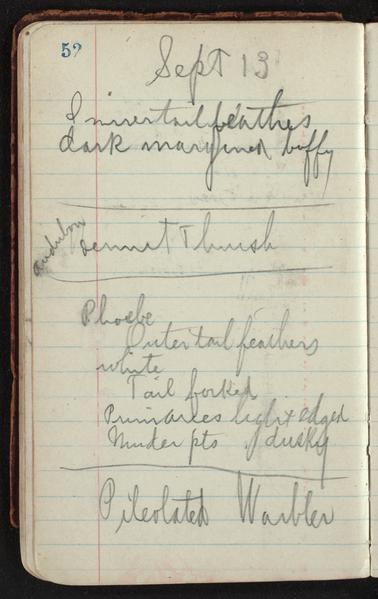 52
Sept 13
Inner tail feathers
dark margined buffy
Audubon
Hermit Thrush
Phoebe
Outer tail feathers
white
Tail forked
Primaries light edged
Under pts dusky
Pileolated Warbler